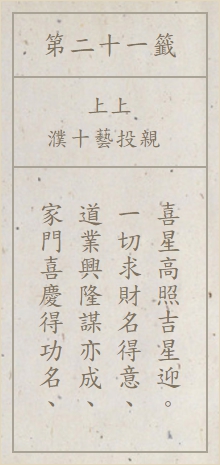 第二十一籤
上上
濮十藝投親
家門喜慶得功名、
道業興隆謀亦成、
一切求財名得意、
喜星高照吉星迎。